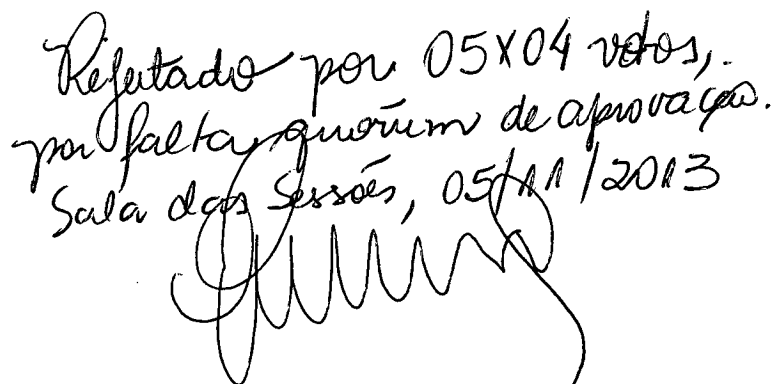 Rejeitado por 05X04 votos,
por falta quórum de aprovação.
Sala das Sessões, 05/11/2013